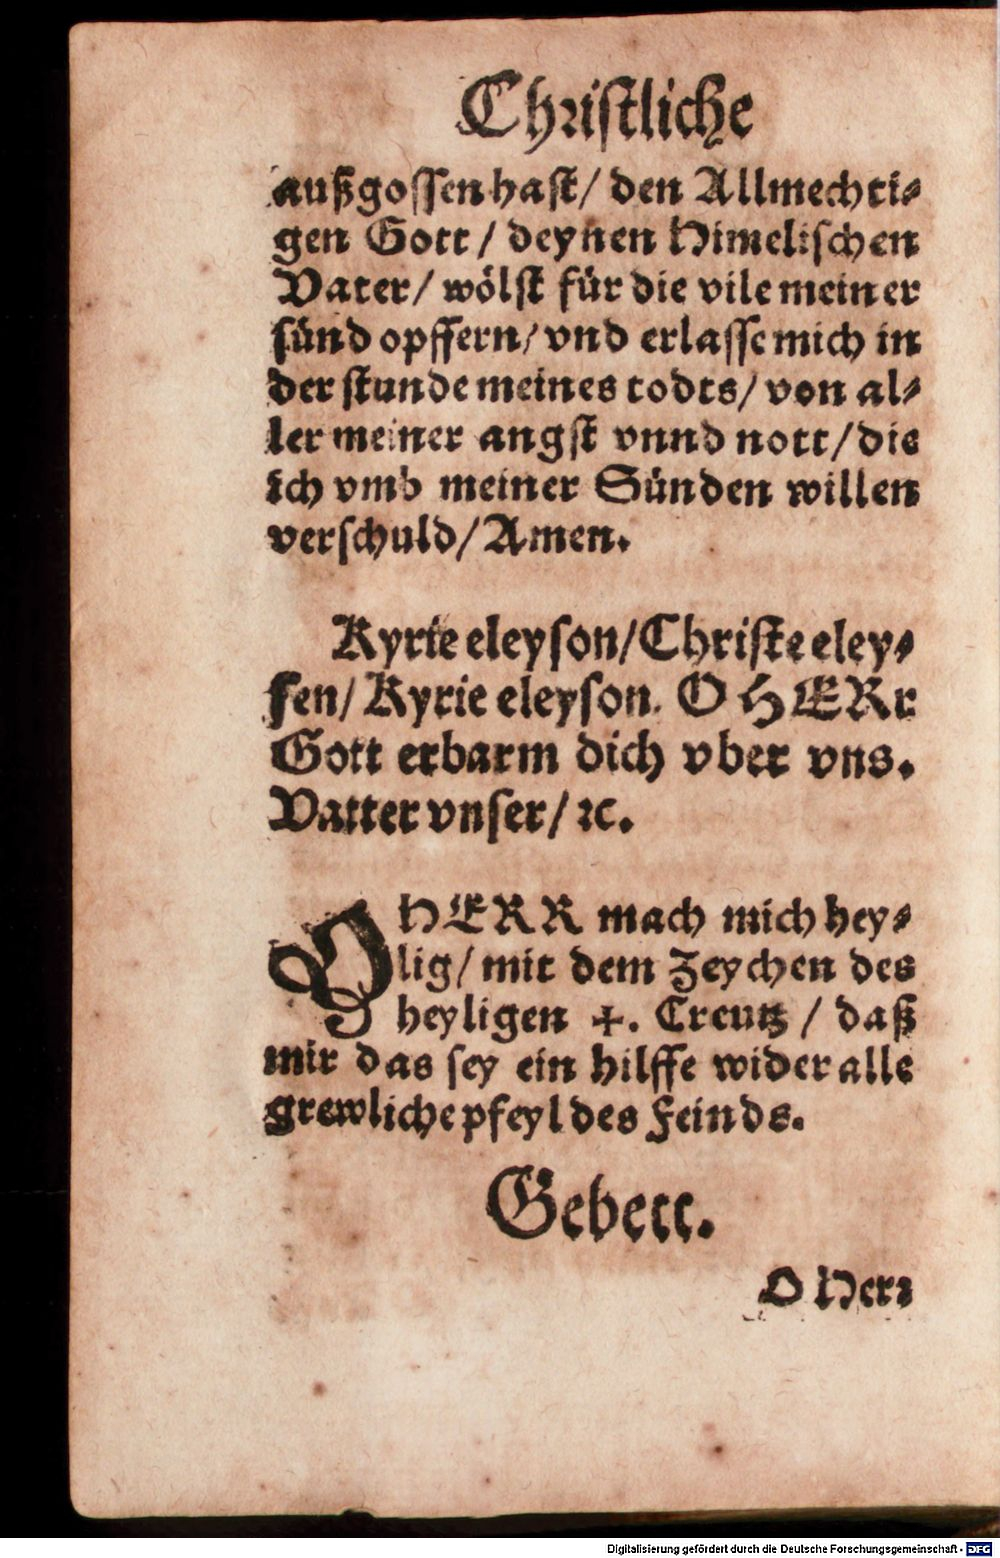 Christliche
außgossen hast/ den Allmechti⸗
gen Gott / deynen Himelischen
Vater/ wölst für die vile meiner
sünd opffern/ vnd erlasse mich in
der stunde meines todts/ von al⸗
ler meiner angst vnnd nott/ die
ich vmb meiner Sünden willen
verschuld/ Amen.
Kyrie eleyson/ Christe eley⸗
sen/ Kyrie eleyson. O HERr
Gott erbarm dich vber vns.
Vatter vnser/ ꝛc.
O HERR mach mich hey⸗
lig/ mit dem Zeychen des
heyligen ✠. Creutz / daß
mir das sey ein hilffe wider alle
grewliche pfeyl des Feinds.
Gebett.
O Herꝛ
Digitalisierung gefördert durch die Deutsche Forschungsgemeinschaft - DFG